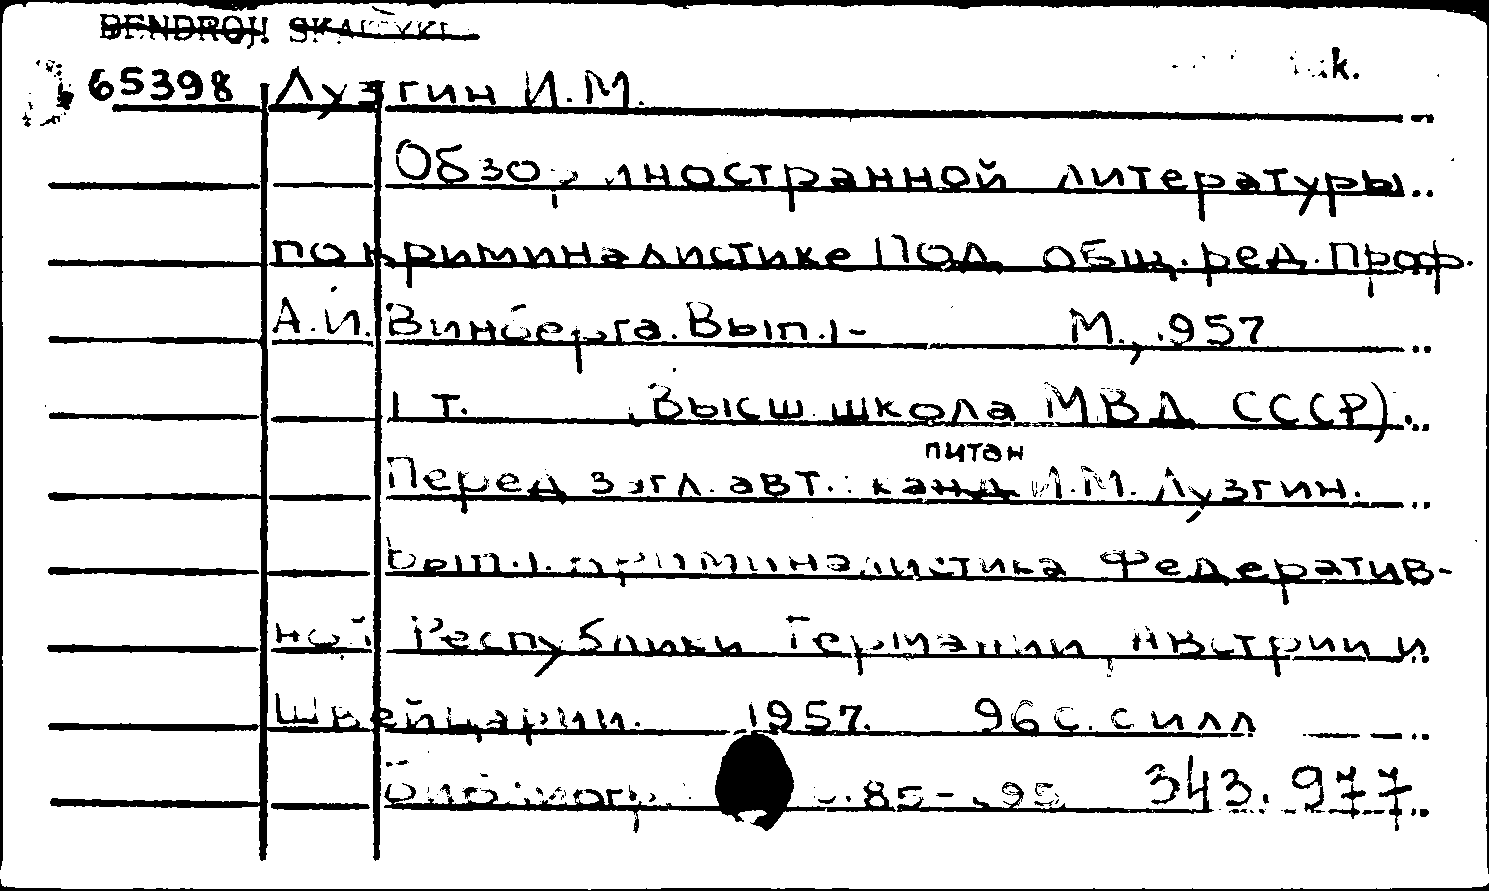 BENDROJI SKAITYKL
65398 Лузгин И.М.
Обзор иностранной литературы
по криминалистике Под общ. ред. Проф.
А.И. Винберга. Вып.1- М., 1957
1 т. Высш. школа МВД СССР).
питан
Перед загл. авт.: канд И.М. Лузгин.
Вып.1. Криминалистика Федератив-
ной Республики Германии, Австрии и
Швейцарии. 1957. 96 с. с илл
Библиогр. с. 85-95 343.977